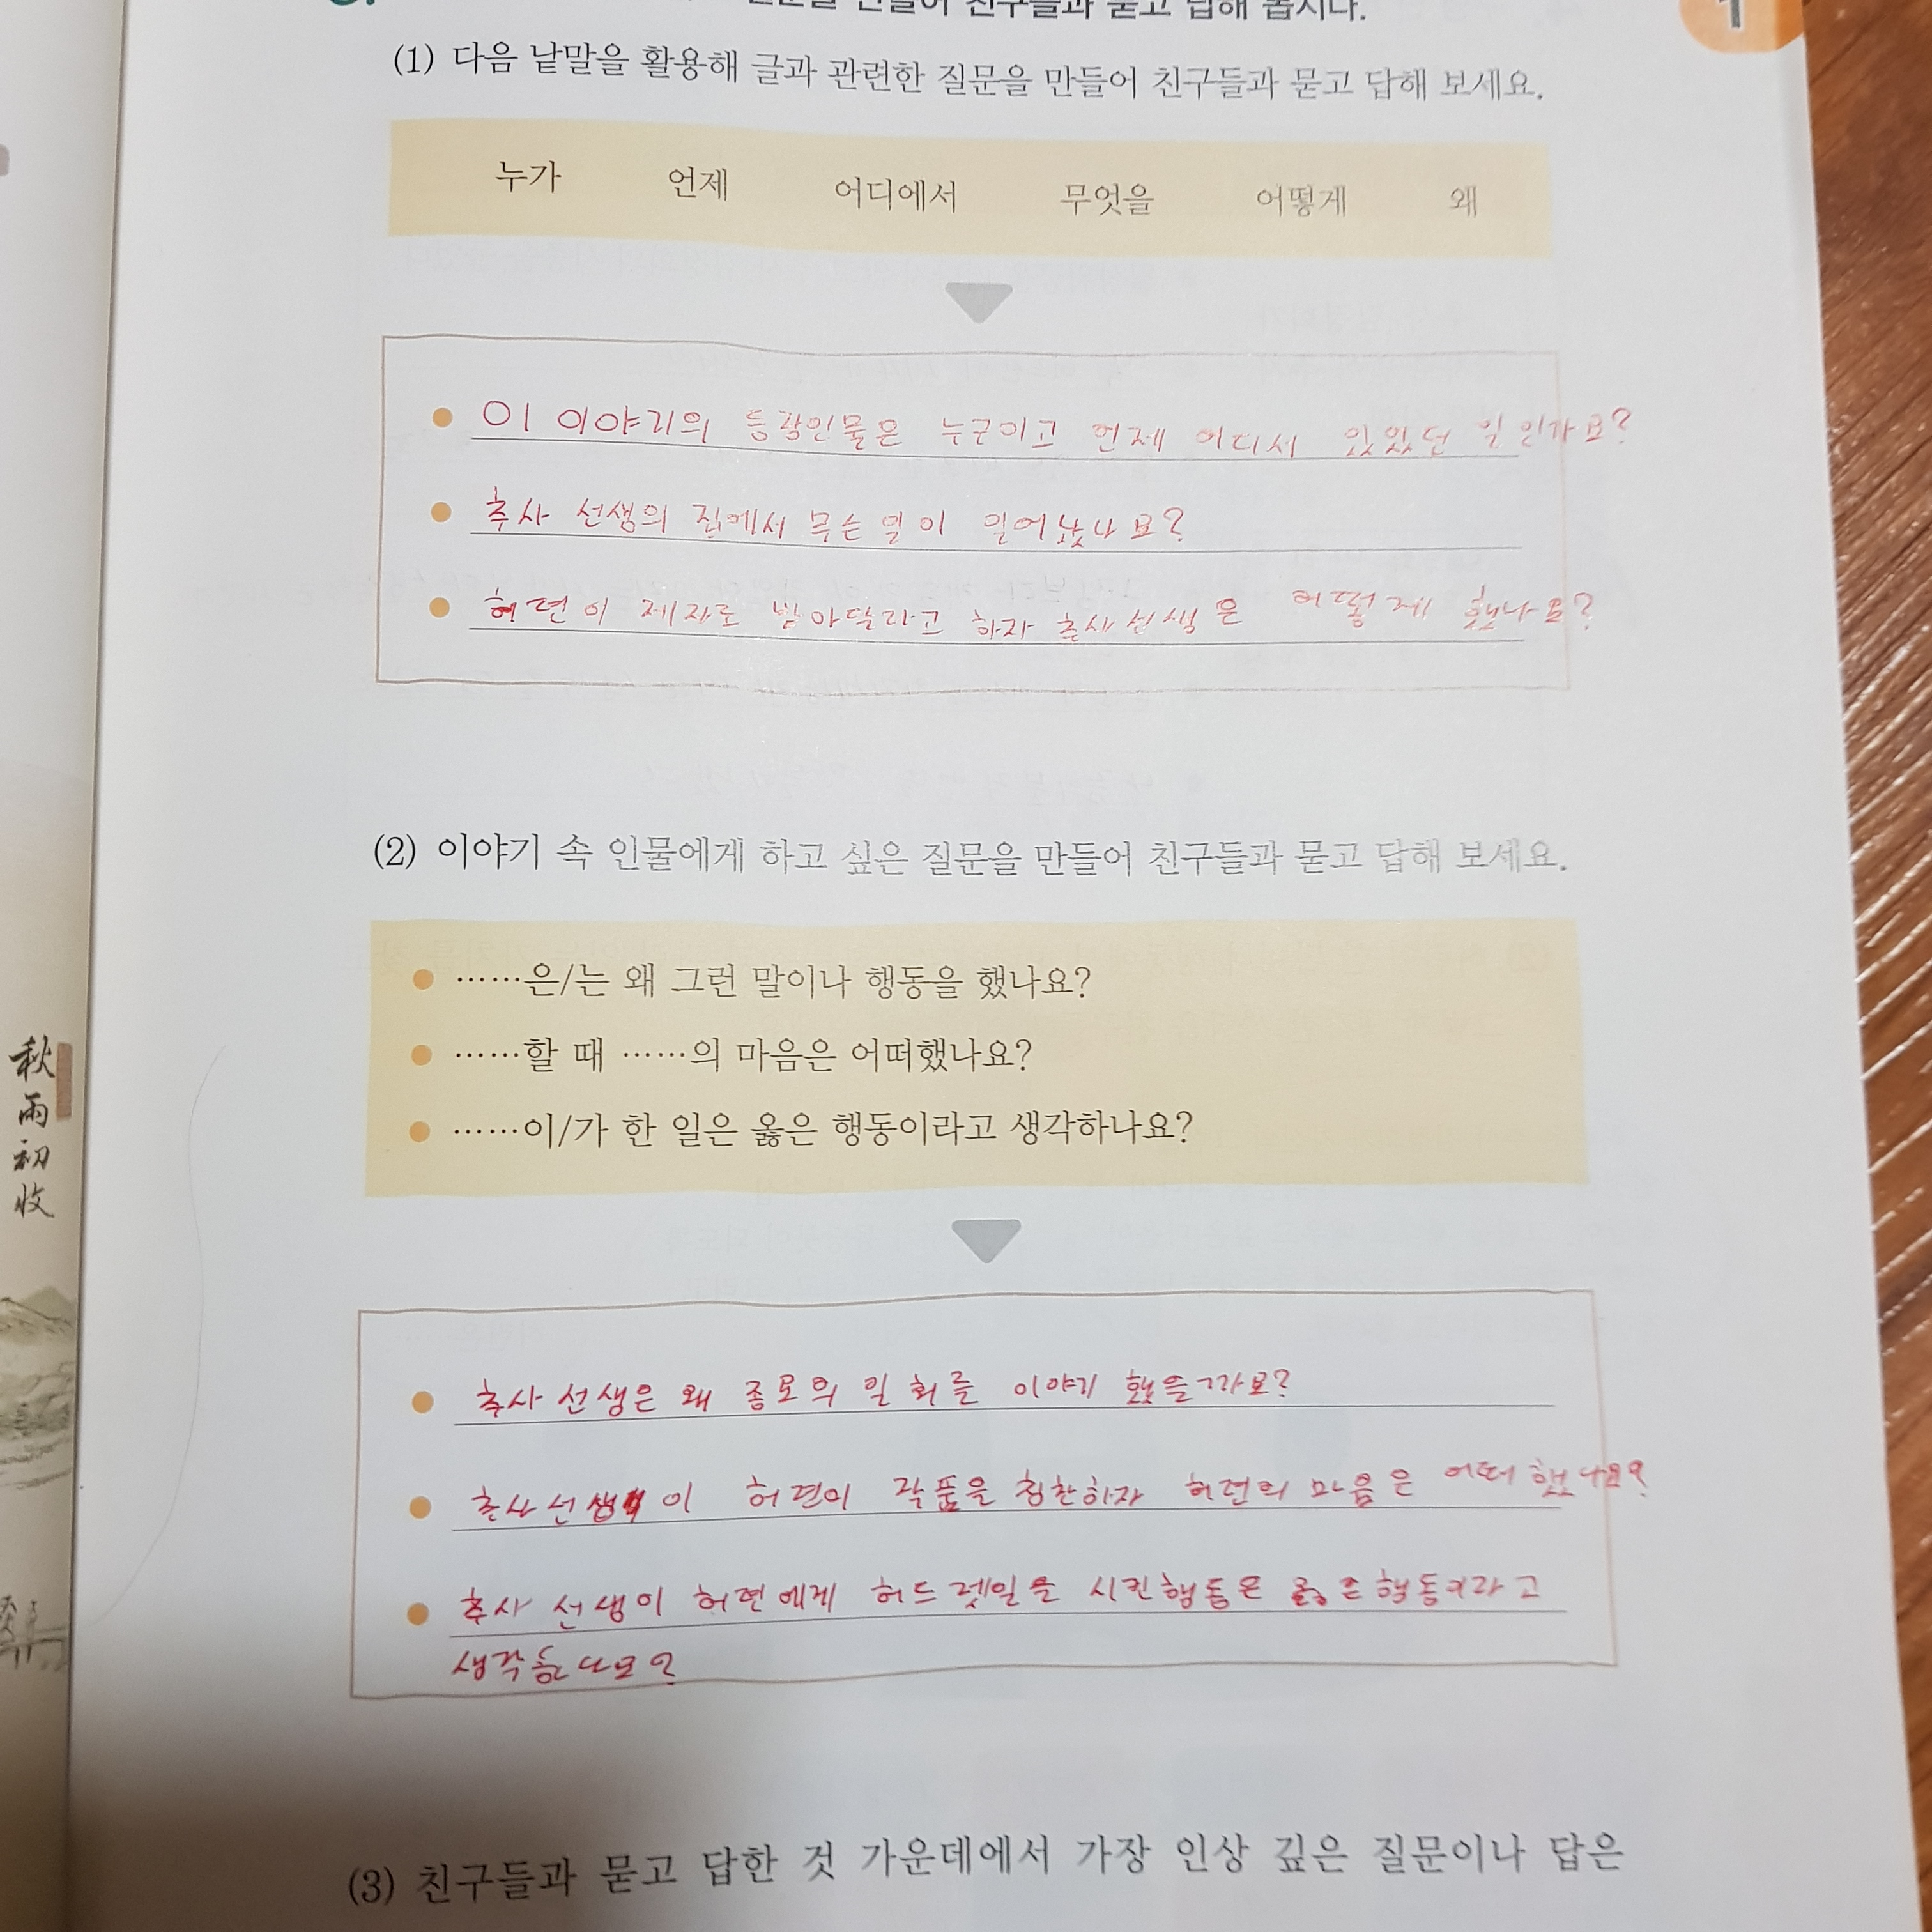 만들어 친구들과 묻고 답해 봅시다.
1
(1) 다음 낱말을 활용해 글과 관련한 질문을 만들어 친구들과 묻고 답해 보세요.
누가 언제 어디에서 무엇을 어떻게 왜
이 이야기의 등장인물은 누구이고 언제 어디서 있었던 일인가요?
추사 선생의 집에서 무슨 일이 일어났나요?
허련이 제자로 받아달라고 하자 추사선생은 어떻게 했나요?
(2) 이야기 속 인물에게 하고 싶은 질문을 만들어 친구들과 묻고 답해 보세요.
……은/는 왜 그런 말이나 행동을 했나요?
……할 때 ……의 마음은 어떠했나요?
……이/가 한 일은 옳은 행동이라고 생각하나요?
秋雨初收
추사 선생은 왜 종로의 일화를 이야기 했을까요?
추사선생이 허련이 작품을 칭찬하자 허련의 마음은 어떠했나요?
추사 선생이 허련에게 허드렛일을 시킨행동은 옳은행동이라고
생각하나요?
(3) 친구들과 묻고 답한 것 가운데에서 가장 인상 깊은 질문이나 답은